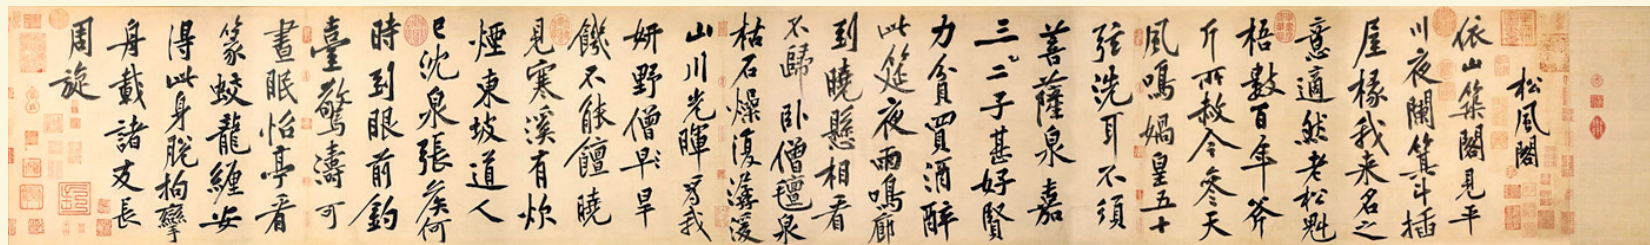 松風閣
依山築閣見平
川夜闌箕斗插
屋椽我来名之
意適然老松魁
梧數百年斧
斤所赦令參天
風鳴媧皇五十
弦洗耳不須
菩薩泉嘉
三二二子甚好賢
力貧買酒醉
此筵夜雨鳴廊
到曉懸相看
不歸臥僧氈泉
枯石燥復潺湲
山川光暉為我
妍野僧早旱
饑不能饘曉
見寒溪有炊
煙東坡道人
已沈泉張侯何
時到眼前釣
臺驚濤可
晝眠怡亭看
篆蛟龍纏安
得此身脫拘攣
舟載諸友長
周旋